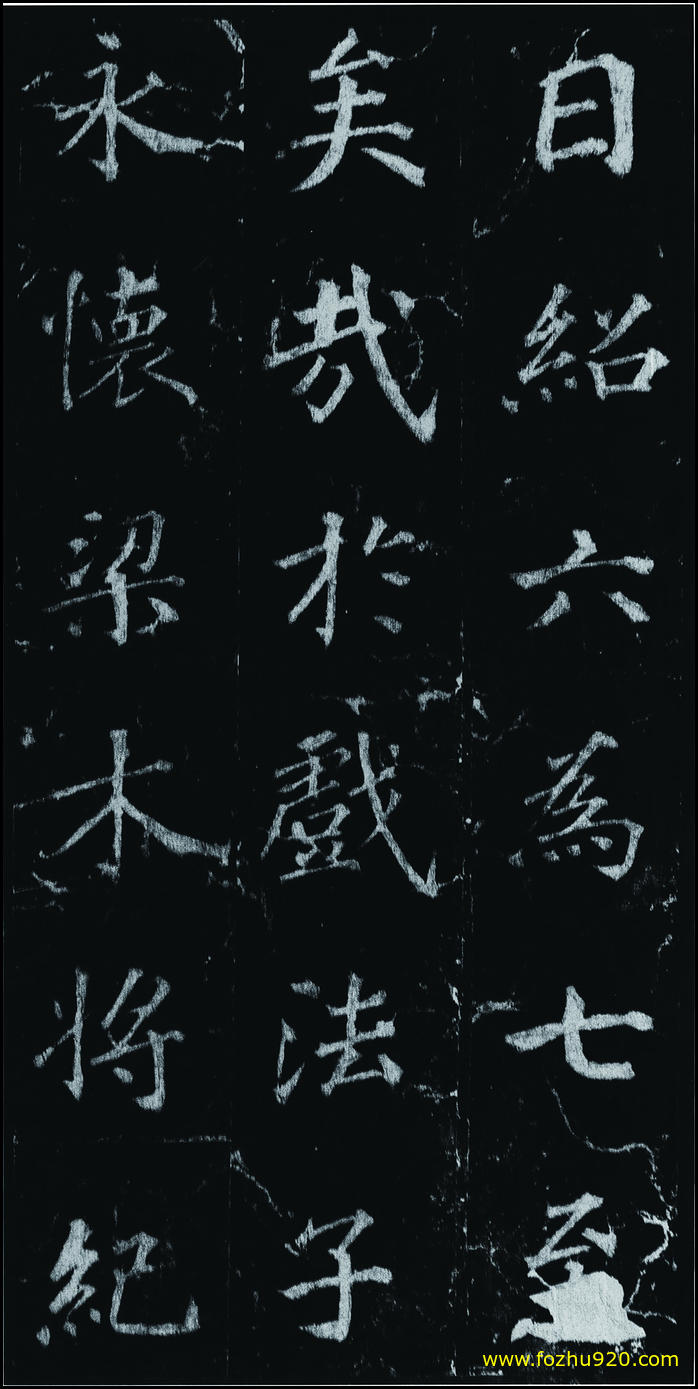 目紹六為七至
矣哉於戲法子
永懷梁木將紀
www.fozhu920.com